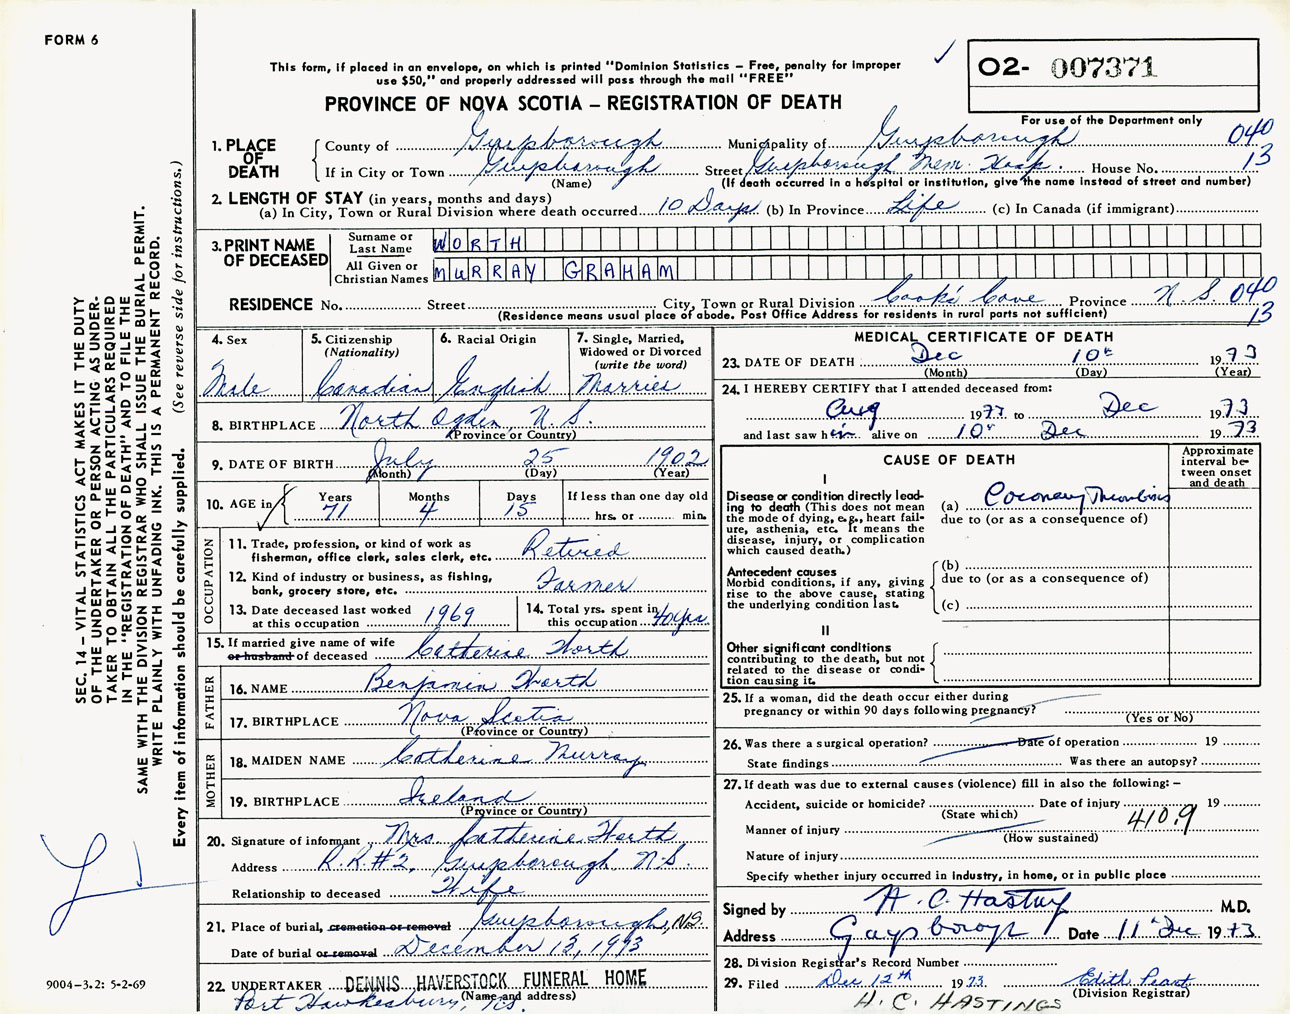 FORM 6
This form, if placed in an envelope, on which is printed "Dominion Statistics – Free, penalty for improper
use $50," and properly addressed will pass through the mail "FREE"
PROVINCE OF NOVA SCOTIA – REGISTRATION OF DEATH
O2- 007371
For use of the Department only
SEC. 14 – VITAL STATISTICS ACT MAKES IT THE DUTY
OF THE UNDERTAKER OR PERSON ACTING AS UNDER-
TAKER TO OBTAIN ALL THE PARTICULARS REQUIRED
IN THE "REGISTRATION OF DEATH" AND TO FILE THE
SAME WITH THE DIVISION REGISTRAR WHO SHALL ISSUE THE BURIAL PERMIT.
WRITE PLAINLY WITH UNFADING INK. THIS IS A PERMANENT RECORD.
Every item of information should be carefully supplied. (See reverse side for instructions.)
1. PLACE OF DEATH
County of Guysborough Municipality of Guysborough 040
If in City or Town Guysborough Street Guysborough Mem. Hosp. House No. 13
(Name) (If death occurred in a hospital or institution, give the name instead of street and number)
2. LENGTH OF STAY (in years, months and days)
(a) In City, Town or Rural Division where death occurred 10 Days (b) In Province Life (c) In Canada (if immigrant)
3. PRINT NAME OF DECEASED
Surname or Last Name WORTH
All Given or Christian Names MURRAY GRAHAM
RESIDENCE No. Street City, Town or Rural Division Cook's Cove Province N.S. 040
(Residence means usual place of abode. Post Office Address for residents in rural parts not sufficient) 13
4. Sex
Male
5. Citizenship
(Nationality)
Canadian
6. Racial Origin
English
7. Single, Married,
Widowed or Divorced
(write the word)
Married
8. BIRTHPLACE North Ogden, N.S.
(Province or Country)
9. DATE OF BIRTH July 25 1902
(Month) (Day) (Year)
10. AGE in Years 71 Months 4 Days 15 If less than one day old
hrs. or min.
OCCUPATION
11. Trade, profession, or kind of work as
fisherman, office clerk, sales clerk, etc. Retired
12. Kind of industry or business, as fishing,
bank, grocery store, etc. Farmer
13. Date deceased last worked
at this occupation 1969
14. Total yrs. spent in
this occupation 40 yrs.
15. If married give name of wife
or husband of deceased Catherine Worth
FATHER
16. NAME Benjamin Worth
17. BIRTHPLACE Nova Scotia
(Province or Country)
MOTHER
18. MAIDEN NAME Catherine Murray
19. BIRTHPLACE Ireland
(Province or Country)
20. Signature of informant Mrs Catherine Worth
Address R.R.#2, Guysborough N.S.
Relationship to deceased Wife
21. Place of burial, cremation or removal Guysborough, N.S.
Date of burial or removal December 13, 1973
22. UNDERTAKER DENNIS HAVERSTOCK FUNERAL HOME
(Name and address)
Port Hawkesbury, N.S.
9004-3.2: 5-2-69
MEDICAL CERTIFICATE OF DEATH
23. DATE OF DEATH Dec 10th 1973
(Month) (Day) (Year)
24. I HEREBY CERTIFY that I attended deceased from:
Aug 1973 to Dec 1973
and last saw him alive on 10th Dec 1973
CAUSE OF DEATH
Approximate
interval be-
tween onset
and death
I
Disease or condition directly lead-
ing to death (This does not mean
the mode of dying, e.g., heart fail-
ure, asthenia, etc. It means the
disease, injury, or complication
which caused death.)
(a) Coronary Thrombosis
due to (or as a consequence of)
Antecedent causes
Morbid conditions, if any, giving
rise to the above cause, stating
the underlying condition last.
(b)
due to (or as a consequence of)
(c)
II
Other significant conditions
contributing to the death, but not
related to the disease or condi-
tion causing it.
25. If a woman, did the death occur either during
pregnancy or within 90 days following pregnancy?
(Yes or No)
26. Was there a surgical operation? Date of operation 19
State findings Was there an autopsy?
27. If death was due to external causes (violence) fill in also the following: –
Accident, suicide or homicide? Date of injury 19
(State which)
Manner of injury 410.9
(How sustained)
Nature of injury
Specify whether injury occurred in industry, in home, or in public place
Signed by H. C. Hastings M.D.
Address Guysboro Date 11th Dec 1973
28. Division Registrar's Record Number
29. Filed Dec 12th 1973 Edith Peart
(Division Registrar)
H. C. HASTINGS